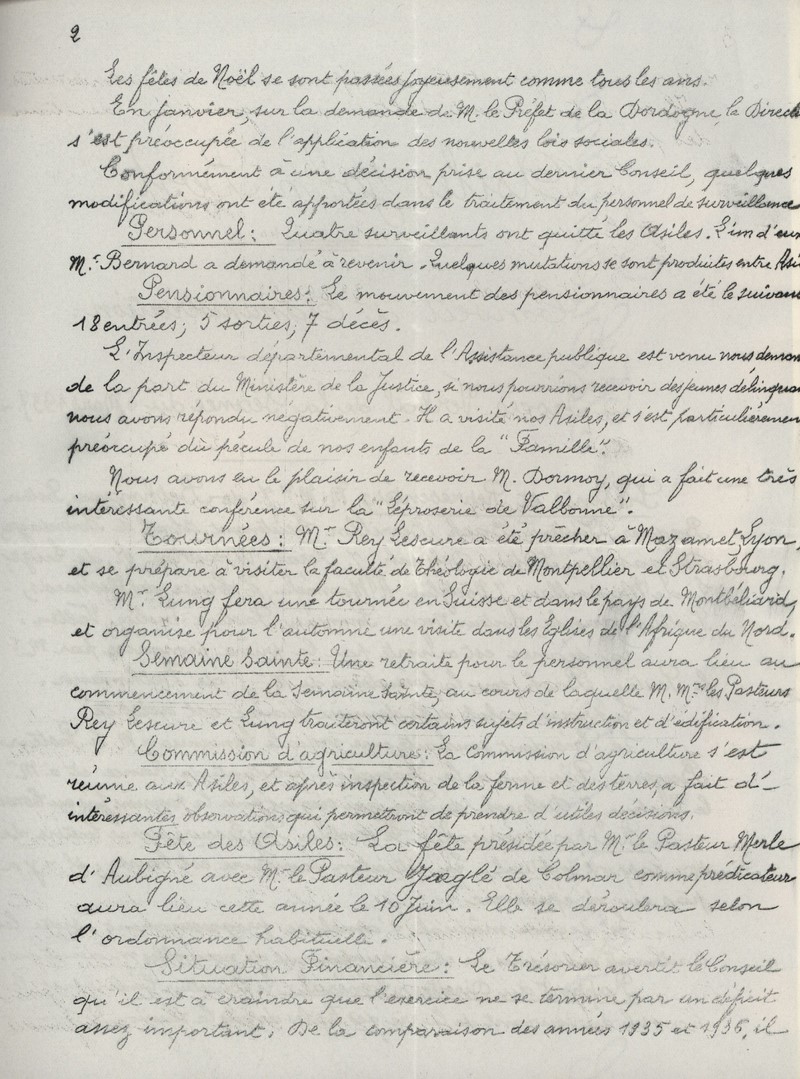 2
Les fêtes de Noël se sont passées joyeusement comme tous les ans.
En janvier, sur la demande de M. le Préfet de la Dordogne, la Direct
s'est préoccupée de l'application des nouvelles lois sociales.
Conformément à une décision prise au dernier Conseil, quelques
modifications ont été apportées dans le traitement du personnel de surveillance
Personnel: Quatre surveillants ont quitté les Asiles. L'un d'eux
Mr. Bernard a demandé à revenir. Quelques mutations se sont produites entre Asi
Pensionnaires: Le mouvement des pensionnaires a été le suivant
18 entrées; 5 sorties; 7 décès.
L'Inspecteur départemental de l'Assistance publique est venu nous deman
de la part du Ministère de la Justice, si nous pourrions recevoir des jeunes délinqua
nous avons répondu négativement. Il a visité nos Asiles, et s'est particulièremen
préoccupé du pécule de nos enfants de la "Famille".
Nous avons eu le plaisir de recevoir M. Dormoy, qui a fait une très
intéressante conférence sur la "Léproserie de Valbonne".
Tournées: Mr. Rey Lescure a été prêcher à Mazamet, Lyon,
et se prépare à visiter la faculté de Théologie de Montpellier et Strasbourg.
Mr. Lung fera une tournée en Suisse et dans le pays de Montbéliard,
et organise pour l'automne une visite dans les Eglises de l'Afrique du Nord.
Semaine Sainte: Une retraite pour le personnel aura lieu au
commencement de la Semaine Sainte, au cours de laquelle M. Mrs les Pasteurs
Rey Lescure et Lung traiteront certains sujets d'instruction et d'édification.
Commission d'agriculture: La Commission d'agriculture s'est
réunie aux Asiles, et après inspection de la ferme et des terres, a fait d'-
intéressantes observations qui permettront de prendre d'utiles décisions.
Fête des Asiles: La fête présidée par Mr. le Pasteur Merle
d'Aubigné avec Mr. le Pasteur Jaeglé de Colmar comme prédicateur
aura lieu cette année le 10 Juin. Elle se déroulera selon
l'ordonnance habituelle.
Situation Financière: Le Trésorier avertit le Conseil
qu'il est à craindre que l'exercice ne se termine par un déficit
assez important. De la comparaison des années 1935 et 1936, il